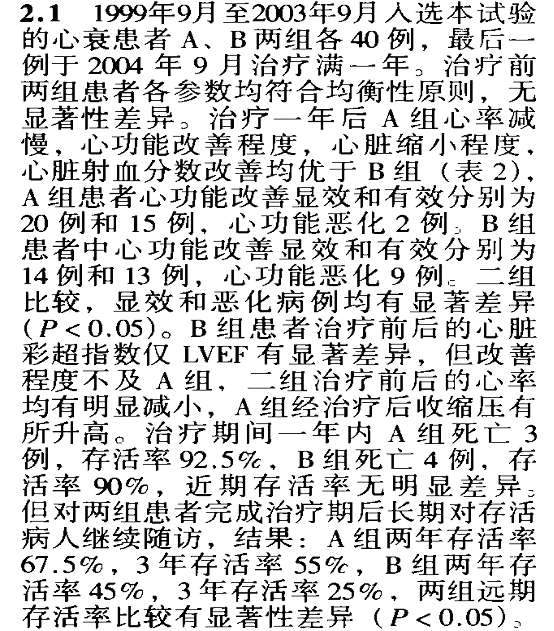 2.1 1999年9月至2003年9月入选本试验
的心衰患者 A、B两组各40例，最后一
例于2004年9月治疗满一年。治疗前
两组患者各参数均符合均衡性原则，无
显著性差异。治疗一年后 A 组心率减
慢，心功能改善程度，心脏缩小程度，
心脏射血分数改善均优于 B 组（表2），
A 组患者心功能改善显效和有效分别为
20例和15例，心功能恶化2例。B 组
患者中心功能改善显效和有效分别为
14例和13例，心功能恶化9例。二组
比较，显效和恶化病例均有显著差异
(P<0.05)。B 组患者治疗前后的心脏
彩超指数仅 LVEF 有显著差异，但改善
程度不及 A 组，二组治疗前后的心率
均有明显减小，A 组经治疗后收缩压有
所升高。治疗期间一年内 A 组死亡3
例，存活率92.5%，B 组死亡4例，存
活率90%，近期存活率无明显差异。
但对两组患者完成治疗期后长期对存活
病人继续随访，结果：A 组两年存活率
67.5%，3年存活率55%，B 组两年存
活率45%，3年存活率25%，两组远期
存活率比较有显著性差异（P<0.05）。